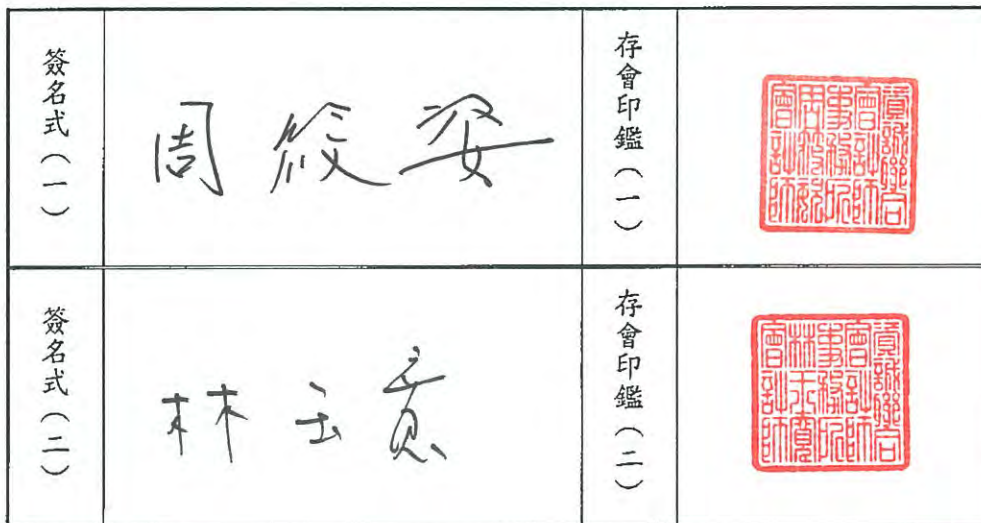 簽名式(一)
周筱姿
存會印鑑(一)
資誠聯合
會計師
事務所
周筱姿
會計師
簽名式(二)
林玉寬
存會印鑑(二)
資誠聯合
會計師
事務所
林玉寬
會計師